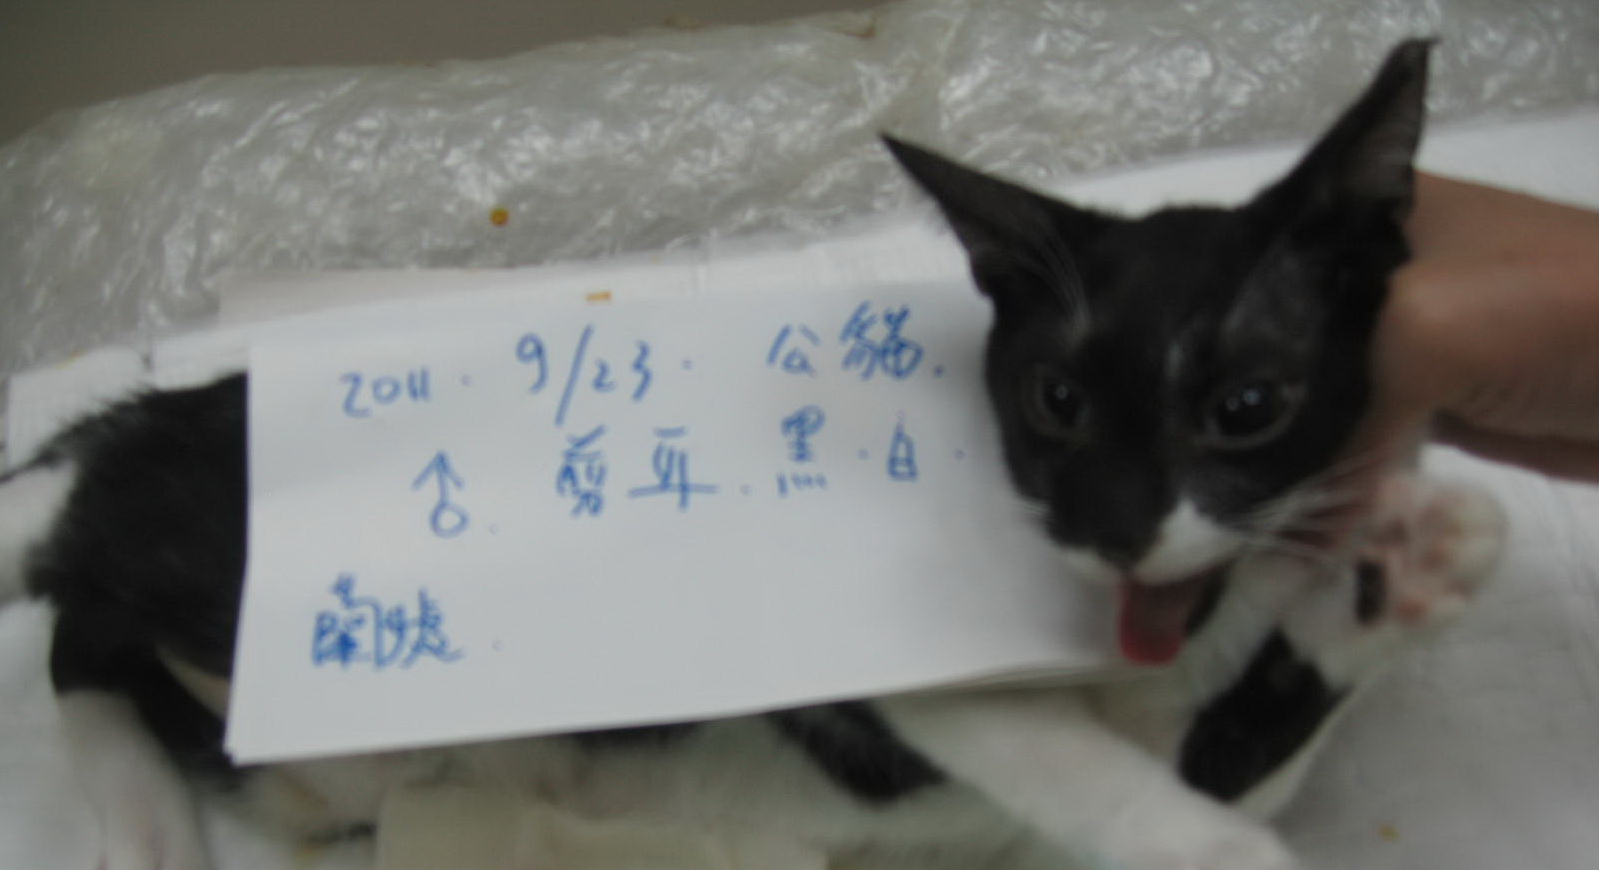 2011. 9/23. 公貓.
♂. 剪耳. 黑.白.
蘭號.